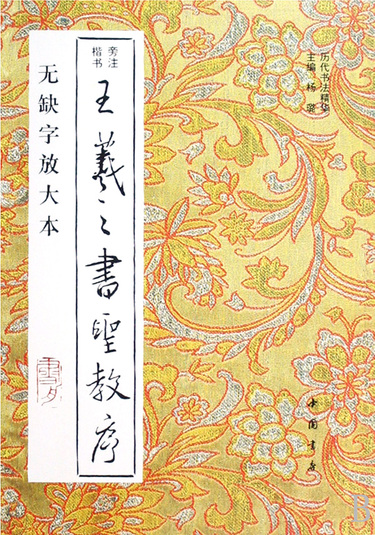 历代书法精华
主编 杨璐
旁注
楷书
王羲之書聖教序
无缺字放大本
中国书店
B